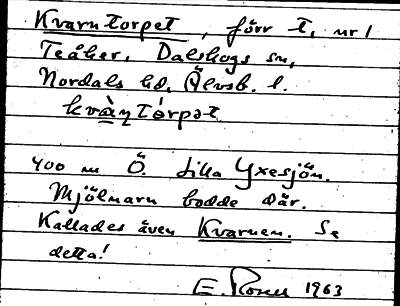 Kvarntorpet, förr t. nr 1
Teåker, Dalskogs sn,
Nordals hd, Älvsb. l.
kvàṇtórpət
400 m Ö. Lilla Yxesjön.
Mjölnarn bodde där.
Kallades även Kvarnen. Se
detta!
E. 1963